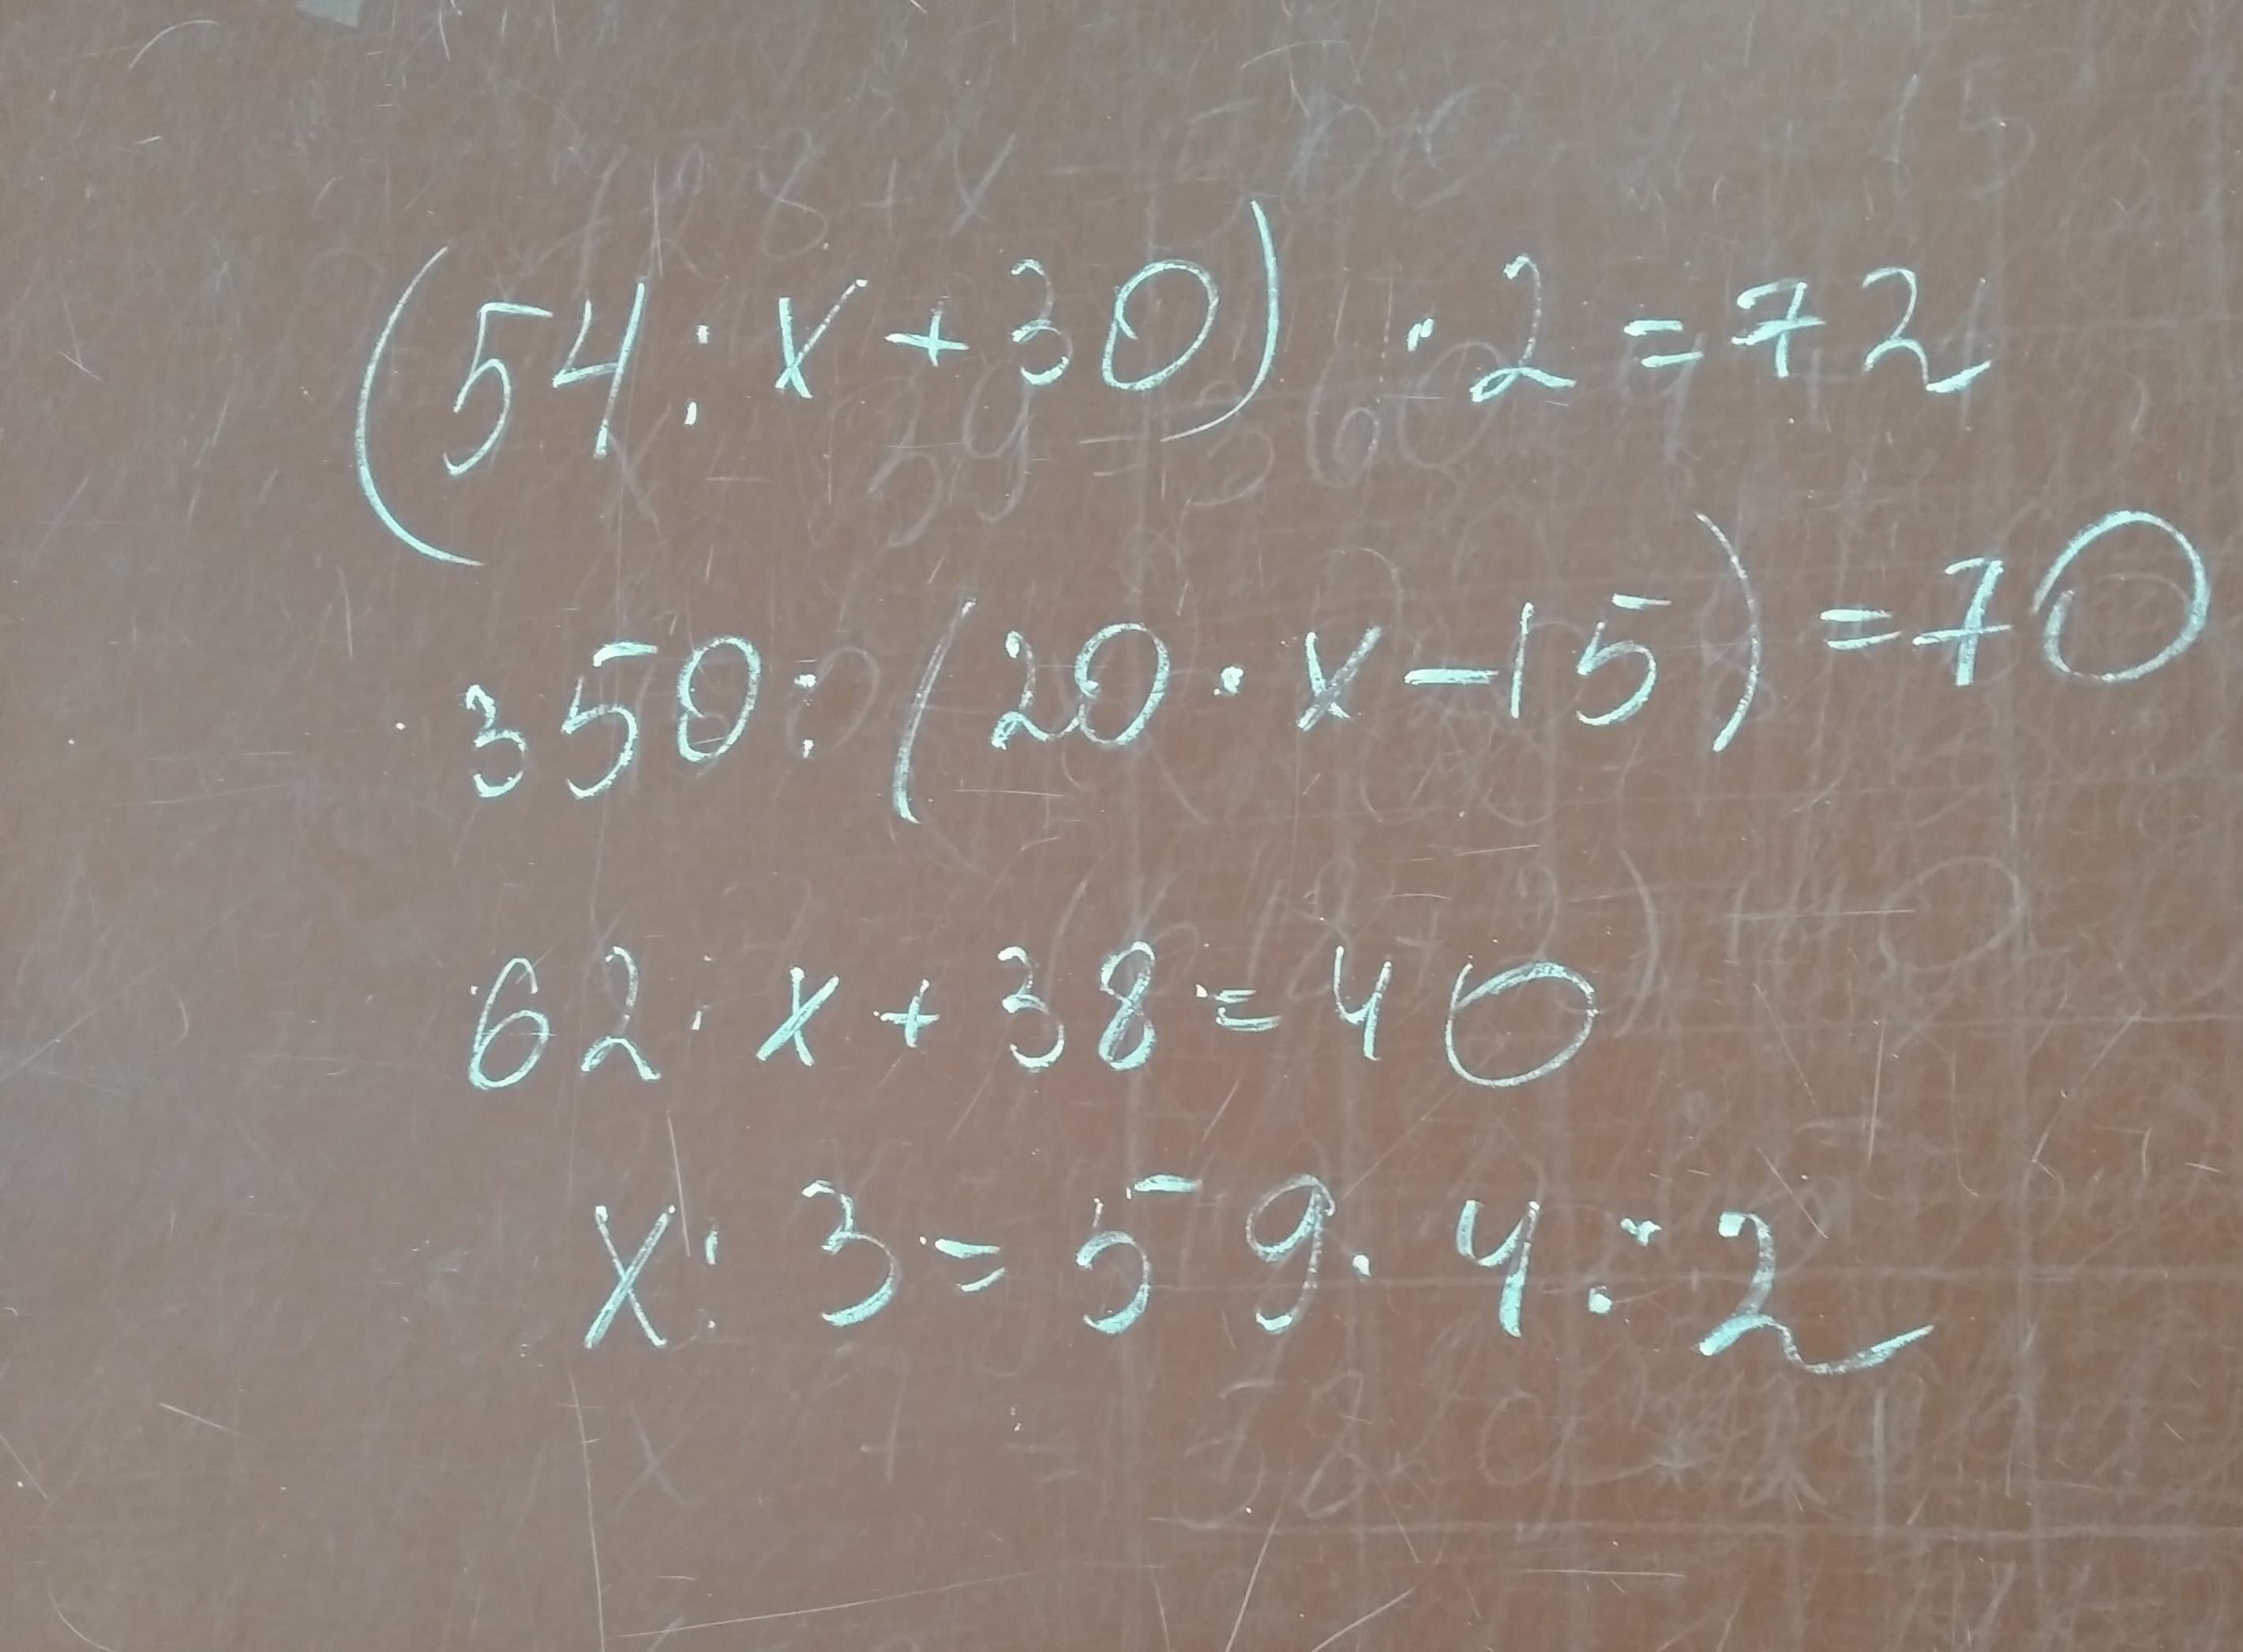 (54 : x + 30) · 2 = 72
350 : (20 · x - 15) = 70
62 : x + 38 = 40
x : 3 = 59 · 4 : 2